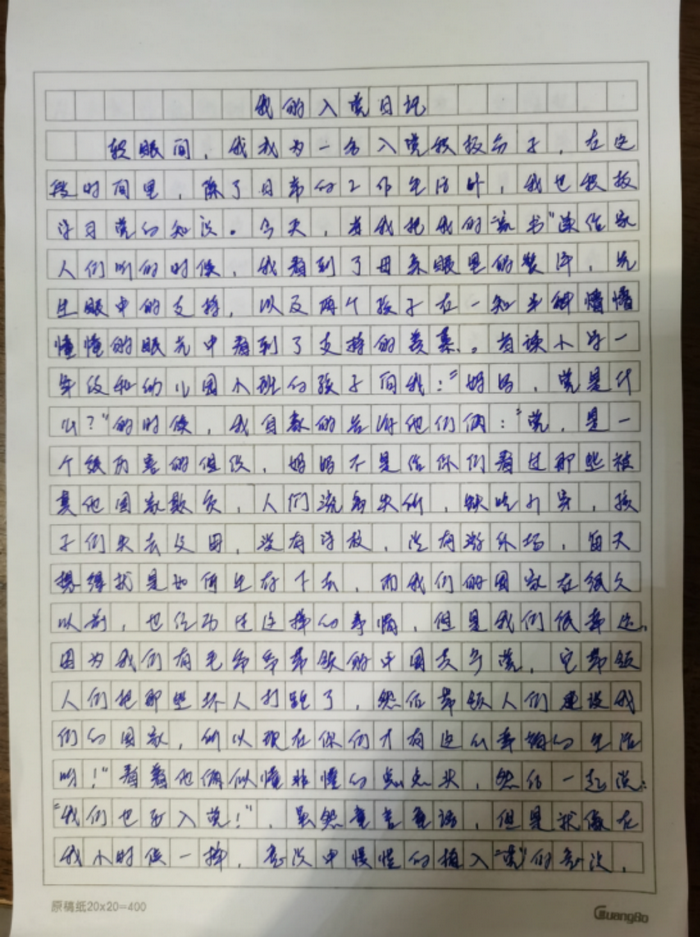 我的入党日记
转眼间，我成为一名入党积极分子，在这
段时间里，除了日常的工作生活外，我也积极
学习党的知识。今天，当我把我的“家书”读给家
人们听的时候，我看到了母亲眼里的赞许，先
生眼中的支持，以及两个孩子在一知半解懵懵
懂懂的眼光中看到了支持的羡慕。当读小学一
年级和幼儿园小班的孩子问我：“妈妈，党是什
么？”的时候，我自豪的告诉他们俩：“党，是一
个很厉害的组织，妈妈不是给你们看过那些被
其他国家欺负，人们流离失所，缺吃少穿，孩
子们失去父母，没有学校，没有游乐场，每天
想得就是如何生存下去，而我们的国家在很久
以前，也经历过这样的事情，但是我们很幸运，
因为我们有毛爷爷带领的中国共产党，它带领
人们把那些坏人打跑了，然后带领人们建设我
们的国家，所以现在你们才有这么幸福的生活
哟！”看着他俩似懂非懂的点点头，然后一起说：
“我们也要入党！”，虽然童言童语，但是就像在
我小时候一样，意识中慢慢的植入“党”的意识，
原稿纸20×20=400
GuangBo